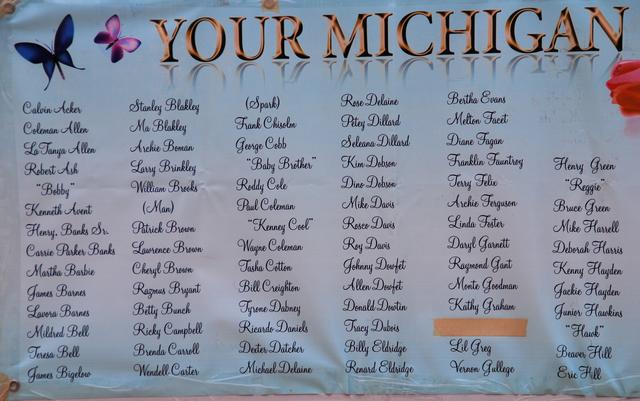 YOUR MICHIGAN
Calvin Acker
Coleman Allen
La Tanya Allen
Robert Ash
"Bobby"
Kenneth Avent
Henry, Banks Sr.
Carrie Parker Banks
Martha Barbie
James Barnes
Lavora Barnes
Mildred Bell
Teresa Bell
James Bigelow
Stanley Blakley
Ma Blakley
Archie Boman
Larry Brinkley
William Brooks
(Man)
Patrick Brown
Lawrence Brown
Cheryl Brown
Razmus Bryant
Betty Bunch
Ricky Campbell
Brenda Carroll
Wendell Carter
(Spark)
Frank Chisolm
George Cobb
"Baby Brother"
Roddy Cole
Paul Coleman
"Kenney Cool"
Wayne Coleman
Tasha Cotton
Bill Creighton
Tyrone Dabney
Ricardo Daniels
Dexter Datcher
Michael Delaine
Rose Delaine
Petey Dillard
Seleana Dillard
Kim Dobson
Dino Dobson
Mike Davis
Rosco Davis
Roy Davis
Johnny Dowfet
Allen Dowfet
Donald Dowtin
Tracy Dubois
Billy Eldridge
Renard Eldridge
Bertha Evans
Melton Facet
Diane Fagan
Franklin Fauntroy
Terry Felix
Archie Ferguson
Linda Foster
Daryl Garnett
Raymond Gant
Monte Goodman
Kathy Graham
Lil Greg
Vernon Gullege
Henry Green
"Reggie"
Bruce Green
Mike Harrell
Deborah Harris
Kenny Hayden
Jackie Hayden
Junior Hawkins
"Hawk"
Beaver Hill
Eric Hill